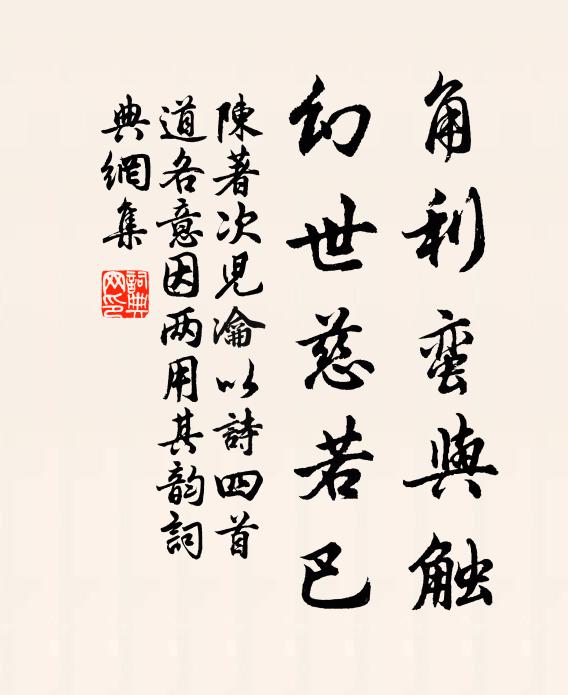 角利蛮與触
幻世慈若巴
陳著次児瀹以詩四首
道各意因两用其韵詞
典網集
詞典
网印